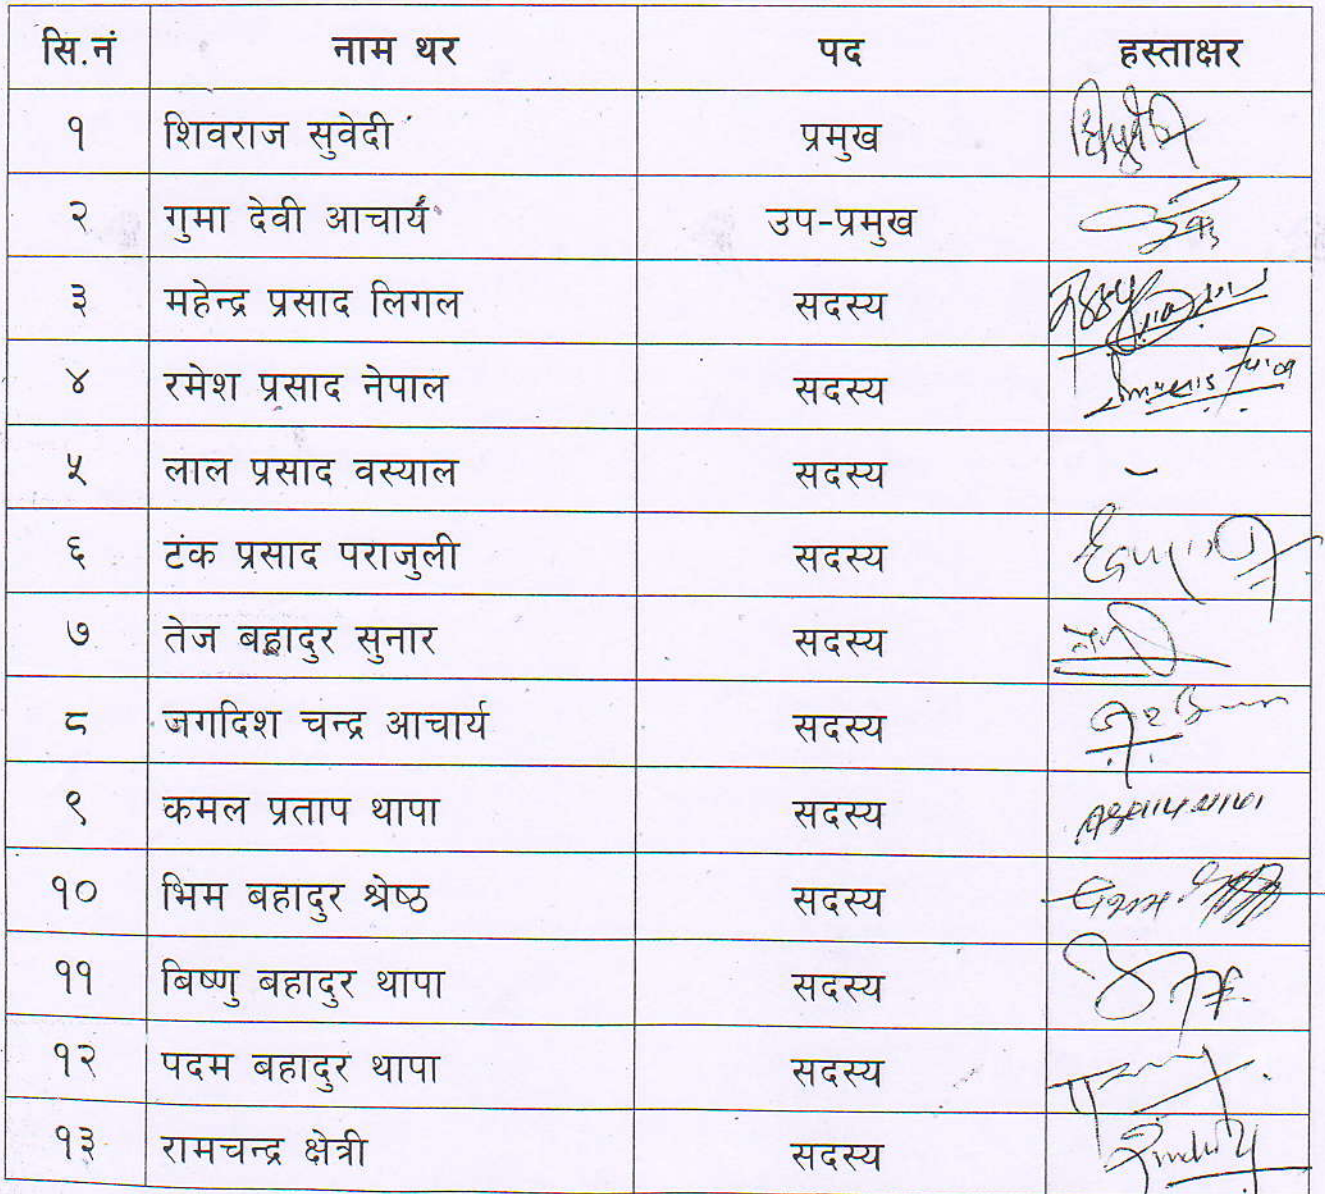 सि.नं नाम थर पद हस्ताक्षर
१ शिवराज सुवेदी प्रमुख
२ गुमा देवी आचार्य उप-प्रमुख
३ महेन्द्र प्रसाद लिगल सदस्य
४ रमेश प्रसाद नेपाल सदस्य
५ लाल प्रसाद वस्याल सदस्य -
६ टंक प्रसाद पराजुली सदस्य
७ तेज बहादुर सुनार सदस्य
८ जगदिश चन्द्र आचार्य सदस्य
९ कमल प्रताप थापा सदस्य
१० भिम बहादुर श्रेष्ठ सदस्य
११ बिष्णु बहादुर थापा सदस्य
१२ पदम बहादुर थापा सदस्य
१३ रामचन्द्र क्षेत्री सदस्य